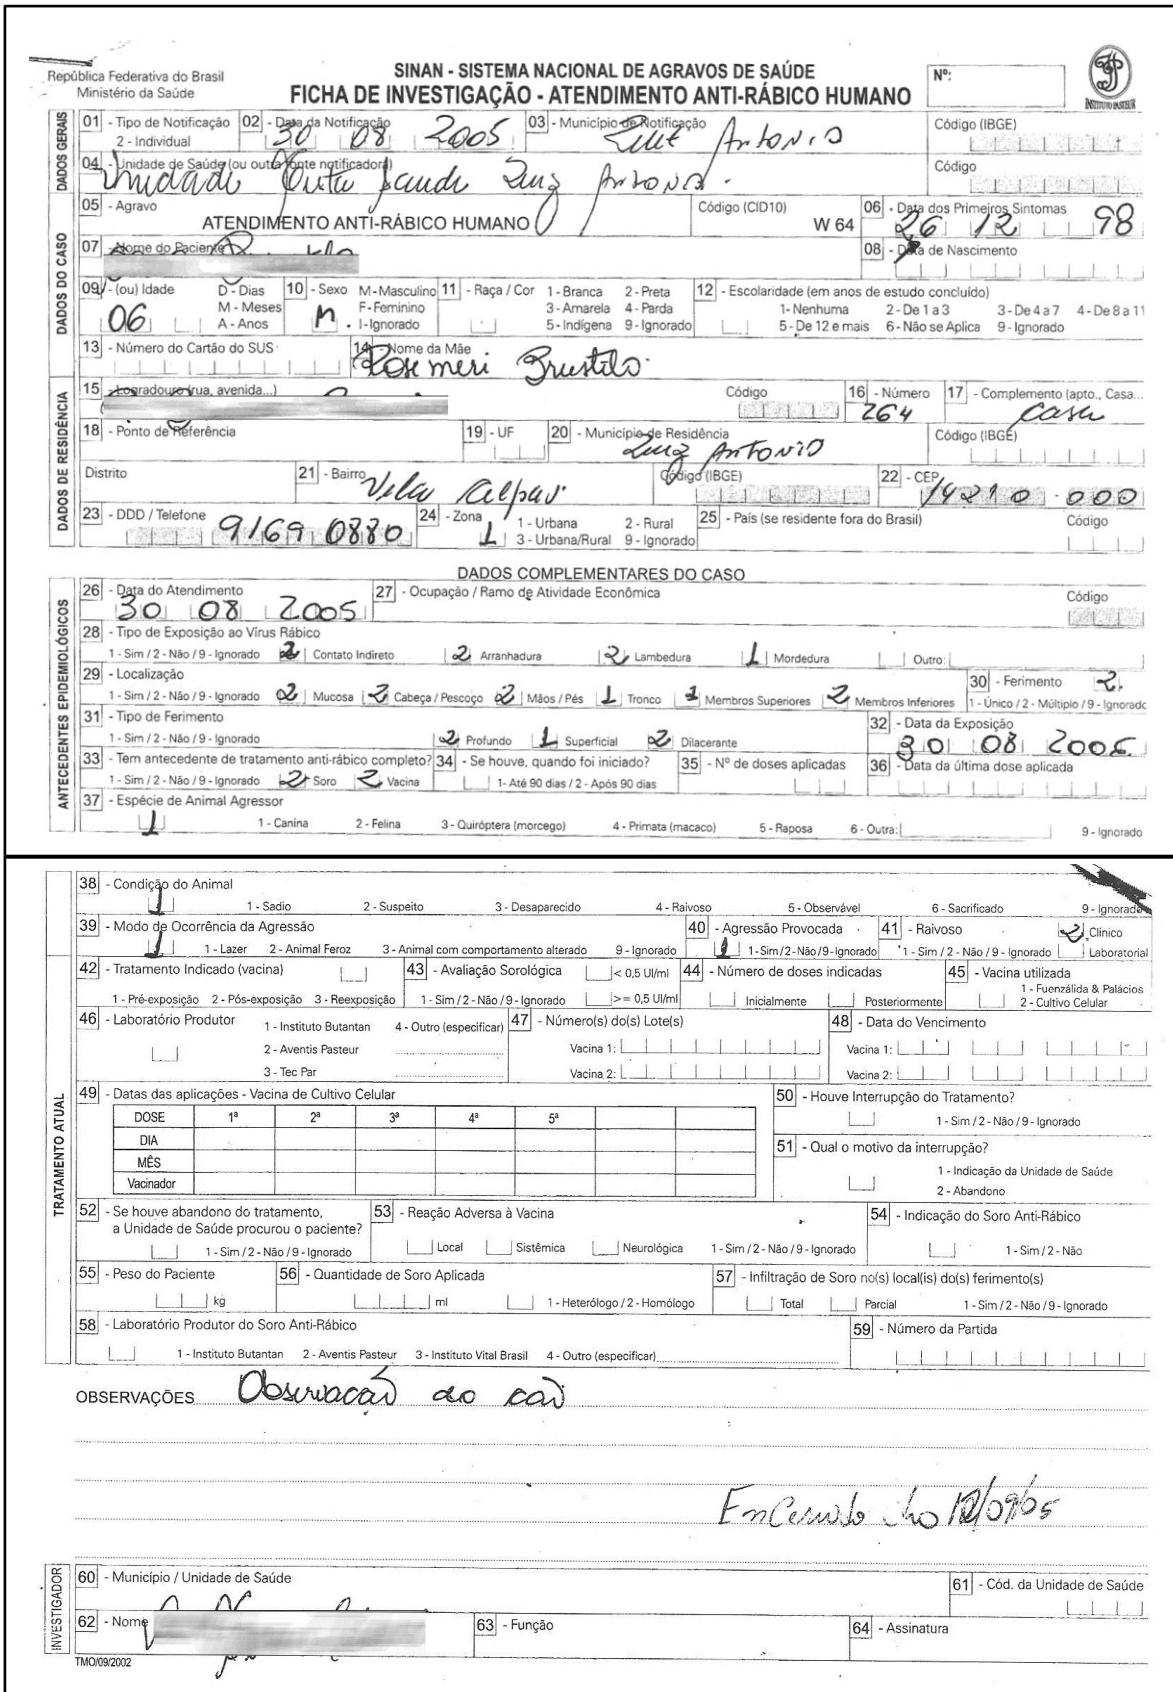 República Federativa do Brasil
Ministério da Saúde
SINAN - SISTEMA NACIONAL DE AGRAVOS DE SAÚDE
FICHA DE INVESTIGAÇÃO - ATENDIMENTO ANTI-RÁBICO HUMANO
Nº:
INSTITUTO PASTEUR
DADOS GERAIS
01 - Tipo de Notificação 2 - Individual
02 - Data da Notificação 30 08 2005
03 - Município de Notificação Antonio
Código (IBGE)
04 - Unidade de Saúde (ou outra fonte notificadora) Unidade Mista Saude Luiz Antonio.
Código
05 - Agravo ATENDIMENTO ANTI-RÁBICO HUMANO Código (CID10) W 64
06 - Data dos Primeiros Sintomas 26 12 98
DADOS DO CASO
07 - Nome do Paciente
08 - Data de Nascimento
09 - (ou) Idade D - Dias M - Meses A - Anos 06
10 - Sexo M - Masculino F - Feminino I - Ignorado M.
11 - Raça / Cor 1 - Branca 2 - Preta 3 - Amarela 4 - Parda 5 - Indígena 9 - Ignorado
12 - Escolaridade (em anos de estudo concluído) 1 - Nenhuma 2 - De 1 a 3 3 - De 4 a 7 4 - De 8 a 11 5 - De 12 e mais 6 - Não se Aplica 9 - Ignorado
13 - Número do Cartão do SUS
14 - Nome da Mãe Rosemeri
DADOS DE RESIDÊNCIA
15 - Logradouro (rua, avenida...) Código
16 - Número 264
17 - Complemento (apto., Casa... Casa
18 - Ponto de Referência
19 - UF
20 - Município de Residência Luiz Antonio
Código (IBGE)
Distrito
21 - Bairro Vila
Código (IBGE)
22 - CEP 14210-000
23 - DDD / Telefone 9169 0880
24 - Zona 1 1 - Urbana 2 - Rural 3 - Urbana/Rural 9 - Ignorado
25 - País (se residente fora do Brasil) Código
DADOS COMPLEMENTARES DO CASO
ANTECEDENTES EPIDEMIOLÓGICOS
26 - Data do Atendimento 30 08 2005
27 - Ocupação / Ramo de Atividade Econômica Código
28 - Tipo de Exposição ao Vírus Rábico
1 - Sim / 2 - Não / 9 - Ignorado 2 Contato Indireto 2 Arranhadura 2 Lambedura 1 Mordedura Outro:
29 - Localização
1 - Sim / 2 - Não / 9 - Ignorado 2 Mucosa 2 Cabeça / Pescoço 2 Mãos / Pés 1 Tronco 1 Membros Superiores 2 Membros Inferiores
30 - Ferimento 2.
1 - Único / 2 - Múltiplo / 9 - Ignorado
31 - Tipo de Ferimento
1 - Sim / 2 - Não / 9 - Ignorado 2 Profundo 1 Superficial 2 Dilacerante
32 - Data da Exposição 30 08 2005
33 - Tem antecedente de tratamento anti-rábico completo?
1 - Sim / 2 - Não / 9 - Ignorado 2 Soro 2 Vacina
34 - Se houve, quando foi iniciado?
1 - Até 90 dias / 2 - Após 90 dias
35 - Nº de doses aplicadas
36 - Data da última dose aplicada
37 - Espécie de Animal Agressor
1 1 - Canina 2 - Felina 3 - Quiróptera (morcego) 4 - Primata (macaco) 5 - Raposa 6 - Outra: 9 - Ignorado
38 - Condição do Animal
1 1 - Sadio 2 - Suspeito 3 - Desaparecido 4 - Raivoso 5 - Observável 6 - Sacrificado 9 - Ignorado
39 - Modo de Ocorrência da Agressão
1 1 - Lazer 2 - Animal Feroz 3 - Animal com comportamento alterado 9 - Ignorado
40 - Agressão Provocada
1 1 - Sim / 2 - Não / 9 - Ignorado
41 - Raivoso
1 - Sim / 2 - Não / 9 - Ignorado 2 Clínico Laboratorial
TRATAMENTO ATUAL
42 - Tratamento Indicado (vacina)
1 - Pré-exposição 2 - Pós-exposição 3 - Reexposição
43 - Avaliação Sorológica < 0,5 UI/ml
1 - Sim / 2 - Não / 9 - Ignorado >= 0,5 UI/ml
44 - Número de doses indicadas
Inicialmente Posteriormente
45 - Vacina utilizada
1 - Fuenzálida & Palácios
2 - Cultivo Celular
46 - Laboratório Produtor 1 - Instituto Butantan 4 - Outro (especificar)
2 - Aventis Pasteur
3 - Tec Par
47 - Número(s) do(s) Lote(s)
Vacina 1:
Vacina 2:
48 - Data do Vencimento
Vacina 1:
Vacina 2:
49 - Datas das aplicações - Vacina de Cultivo Celular
DOSE 1ª 2ª 3ª 4ª 5ª
DIA
MÊS
Vacinador
50 - Houve Interrupção do Tratamento?
1 - Sim / 2 - Não / 9 - Ignorado
51 - Qual o motivo da interrupção?
1 - Indicação da Unidade de Saúde
2 - Abandono
52 - Se houve abandono do tratamento,
a Unidade de Saúde procurou o paciente?
1 - Sim / 2 - Não / 9 - Ignorado
53 - Reação Adversa à Vacina
Local Sistêmica Neurológica 1 - Sim / 2 - Não / 9 - Ignorado
54 - Indicação do Soro Anti-Rábico
1 - Sim / 2 - Não
55 - Peso do Paciente
kg
56 - Quantidade de Soro Aplicada
ml 1 - Heterólogo / 2 - Homólogo
57 - Infiltração de Soro no(s) local(is) do(s) ferimento(s)
Total Parcial 1 - Sim / 2 - Não / 9 - Ignorado
58 - Laboratório Produtor do Soro Anti-Rábico
1 - Instituto Butantan 2 - Aventis Pasteur 3 - Instituto Vital Brasil 4 - Outro (especificar)
59 - Número da Partida
OBSERVAÇÕES Observação do cão
Encerrado 12/09/05
INVESTIGADOR
60 - Município / Unidade de Saúde
61 - Cód. da Unidade de Saúde
62 - Nome
63 - Função
64 - Assinatura
TMO/09/2002